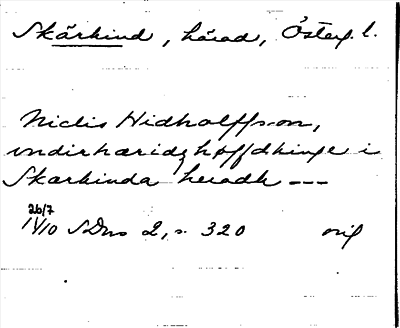 Skärkind, härad, Österg. l.
Niclis Hidholffson,
vndirhæridzhøffdhinge i
Skærkinda heradh ---
26/7
1410 SDns 2, s. 320 orig